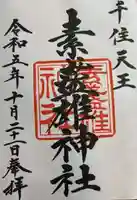 千住天王
素盞雄神社
令和五年十月二十一日奉拝